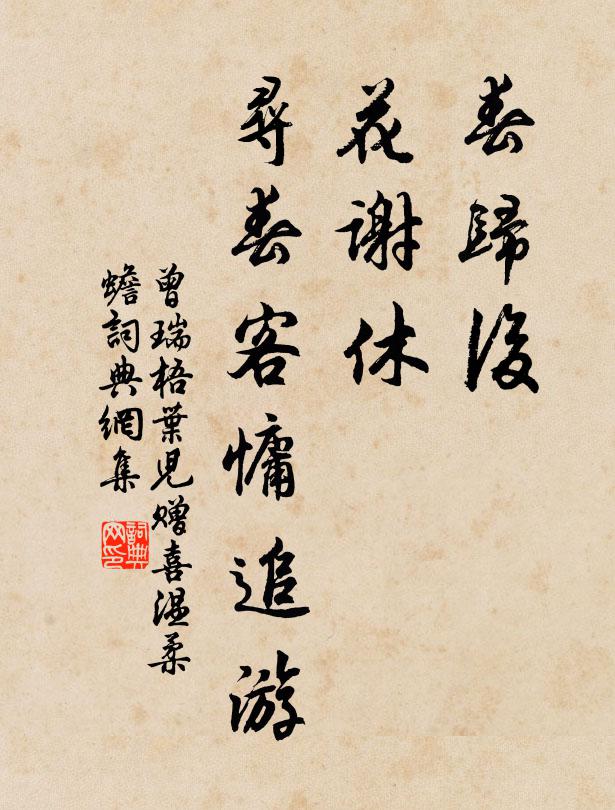 春歸後
花謝休
尋春客慵追游
曾瑞梧葉兒贈喜溫柔
蟾詞典網集
詞典
网印